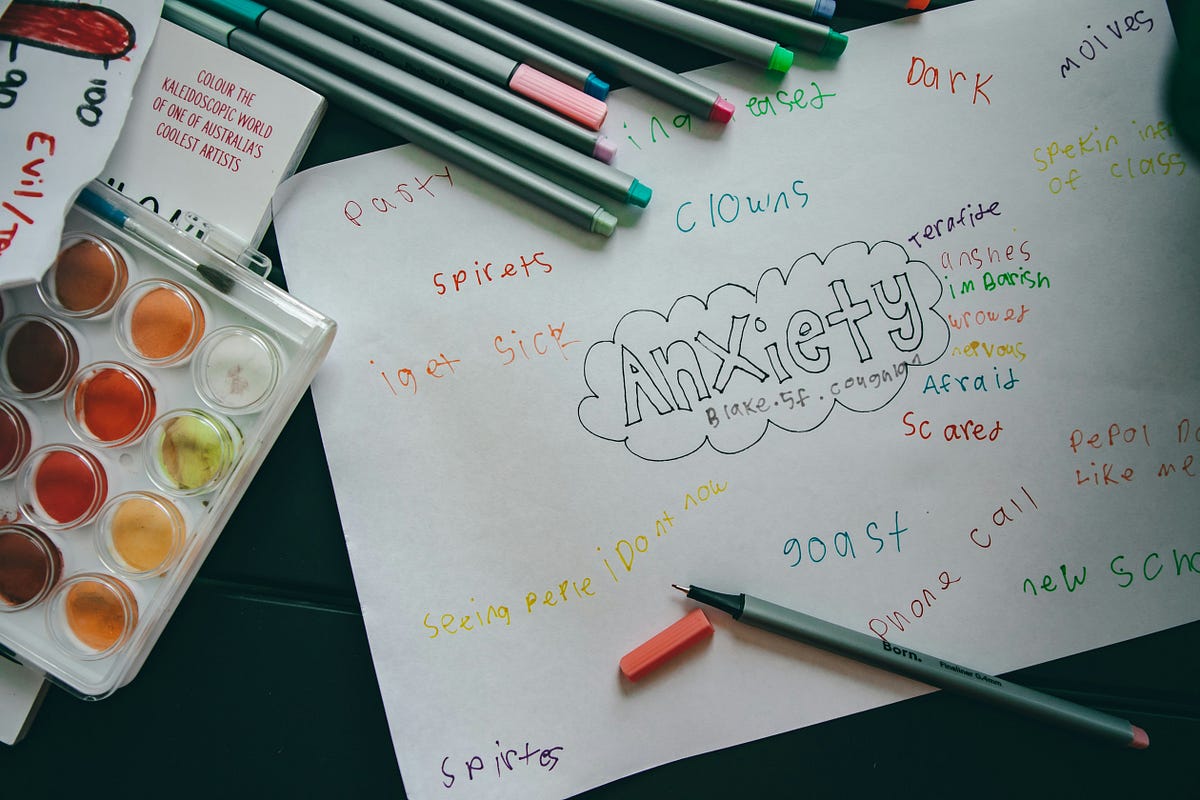 COLOUR THE
KALEIDOSCOPIC WORLD
OF ONE OF AUSTRALIA'S
COOLEST ARTISTS
-90
-100
Evil/
ing
Dark
moives
spekin
of class
party
clowns
spirets
iget sick
Anxiety
Blake.5f.coughlan
terafite
anshes
imBarish
wrowet
nervous
Afraid
Scared
pepol
Like me
seeing peple i Dont now
goast
phone call
new
Born.
Fineliner 0.4mm
spirtes